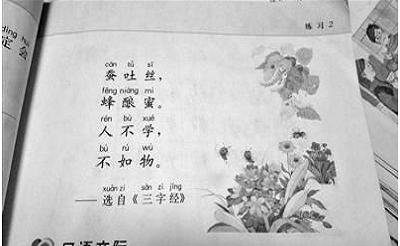 练习 2
dìng huì
定 会
cán tǔ sī
蚕吐丝，
fēng niàng mì
蜂酿蜜。
rén bù xué
人不学，
bù rú wù
不如物。
xuǎn zì sān zì jīng
——选自《三字经》
口语交际